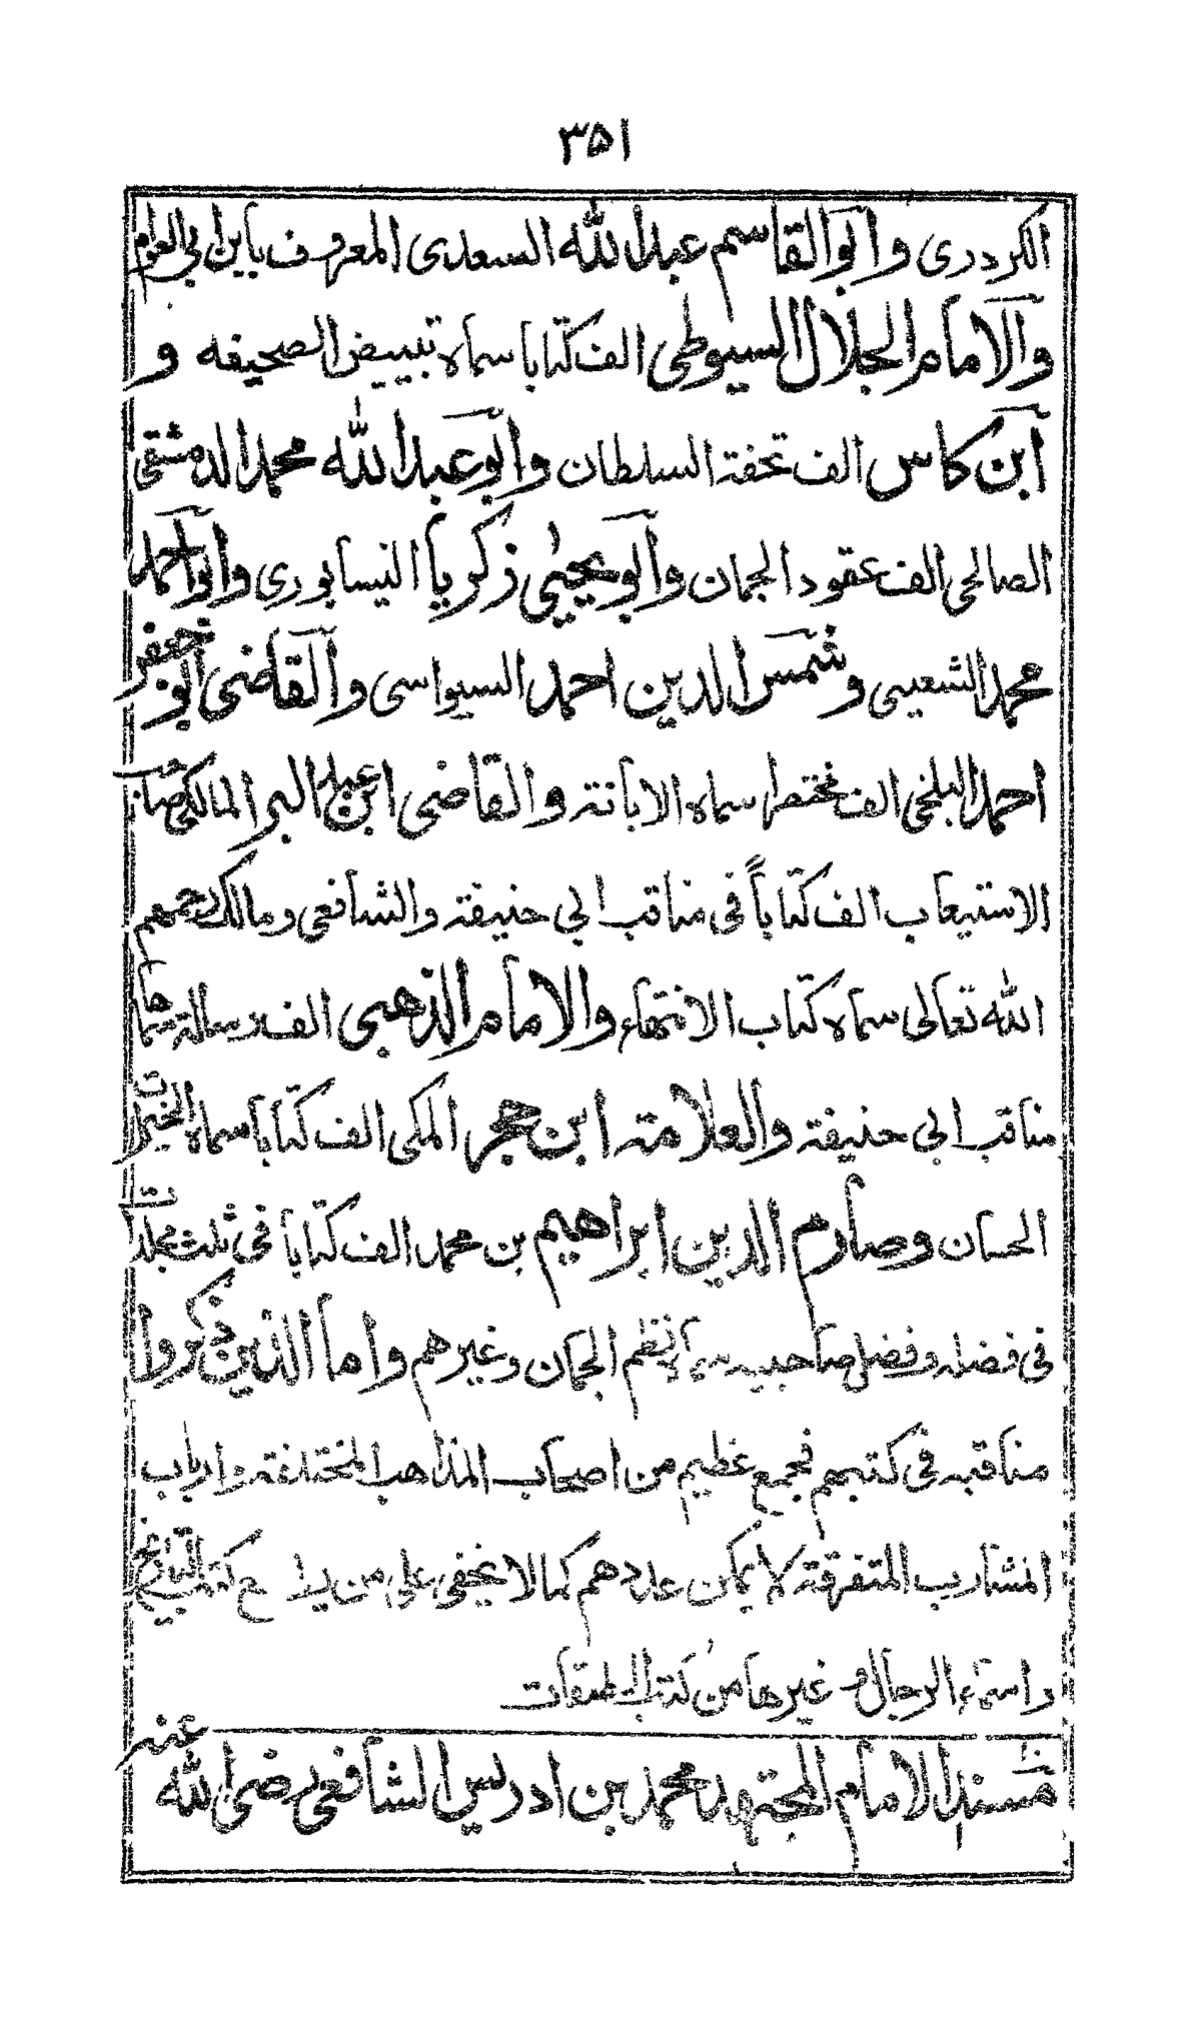 ٣٥١
الكردرى وابو القاسم عبد الله السعدى المعروف بابن ابى العوام
والامام الجلال السيوطى الف كتابا سماه تبييض الصحيفه و
ابن كاس الف تحفة السلطان وابو عبد الله محمد الدمشقى
الصالحى الف عقود الجمان وابو يحيى زكريا النيسابورى وابو احمد
محمد الشعيبى وشمس الدين احمد السيواسى والقاضى ابو جعفر
احمد البلخى الف مختصرا سماه الابانة والقاضى ابن عبد البر المالكى صاحب
الاستيعاب الف كتاباً فى مناقب ابى حنيفة والشافعى ومالك رحمهم
الله تعالى سماه كتاب الانتهاء والامام الذهبى الف رسالة سماها
مناقب ابى حنيفة والعلامة ابن حجر المكى الف كتابا سماه الخيرات
الحسان وصارم الدين ابراهيم بن محمد الف كتابا فى ثلث مجلدات
فى فضله وفضل صاحبيه سماه نظم الجمان وغيرهم واما الذين ذكروا
مناقبه فى كتبهم فجمع عظيم من اصحاب المذاهب المختلفة وارباب
المشارب المتفرقة لا يمكن عددهم كما لا يخفى على من يطالع كتب التاريخ
واسماء الرجال وغيرها من كتب الطبقات
مسند الامام المجتهد محمد بن ادريس الشافعى رضى الله عنه